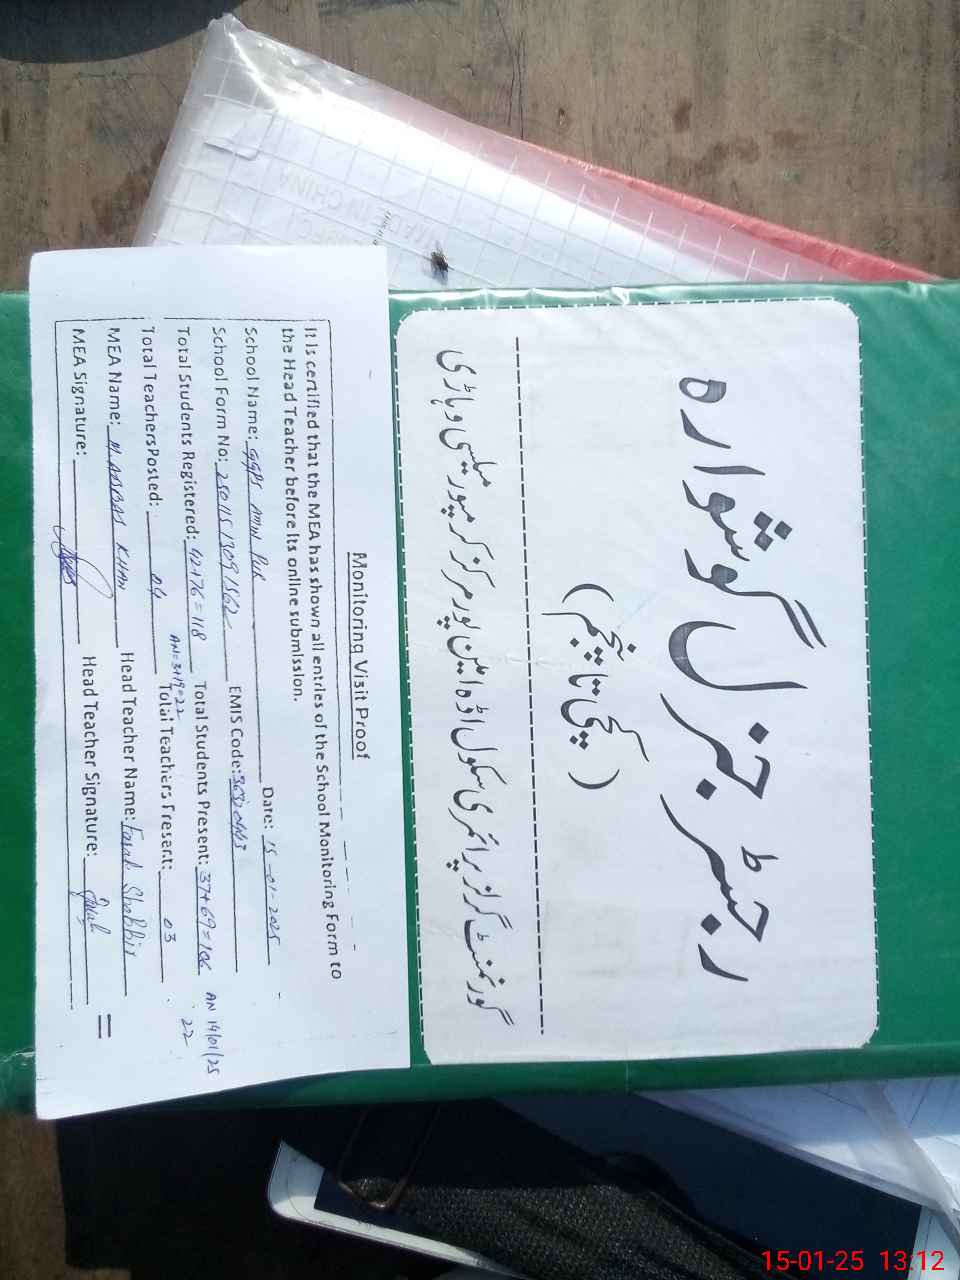 رجسٹر جنرل گوشوارہ
(کچی تا پنجم)
گورنمنٹ گرلز پرائمری سکول اڈہ امین پور مرکز کرمپور میلسی وہاڑی
Monitoring Visit Proof
It is certified that the MEA has shown all entries of the School Monitoring Form to
the Head Teacher before its online submission.
School Name: GGPS Amin Pur Date: 15-01-2025
School Form No: EMIS Code:
Total Students Registered: 42+76=118 Total Students Present: 37+69=106 AN 14/01/25
AN=3+19=22 22
Total TeachersPosted: 04 Total Teachers Present: 03
MEA Name: M. AASBAS KHAN Head Teacher Name: Farah Shabbir
MEA Signature: Head Teacher Signature: Farah
MADE IN CHINA
15-01-25 13:12